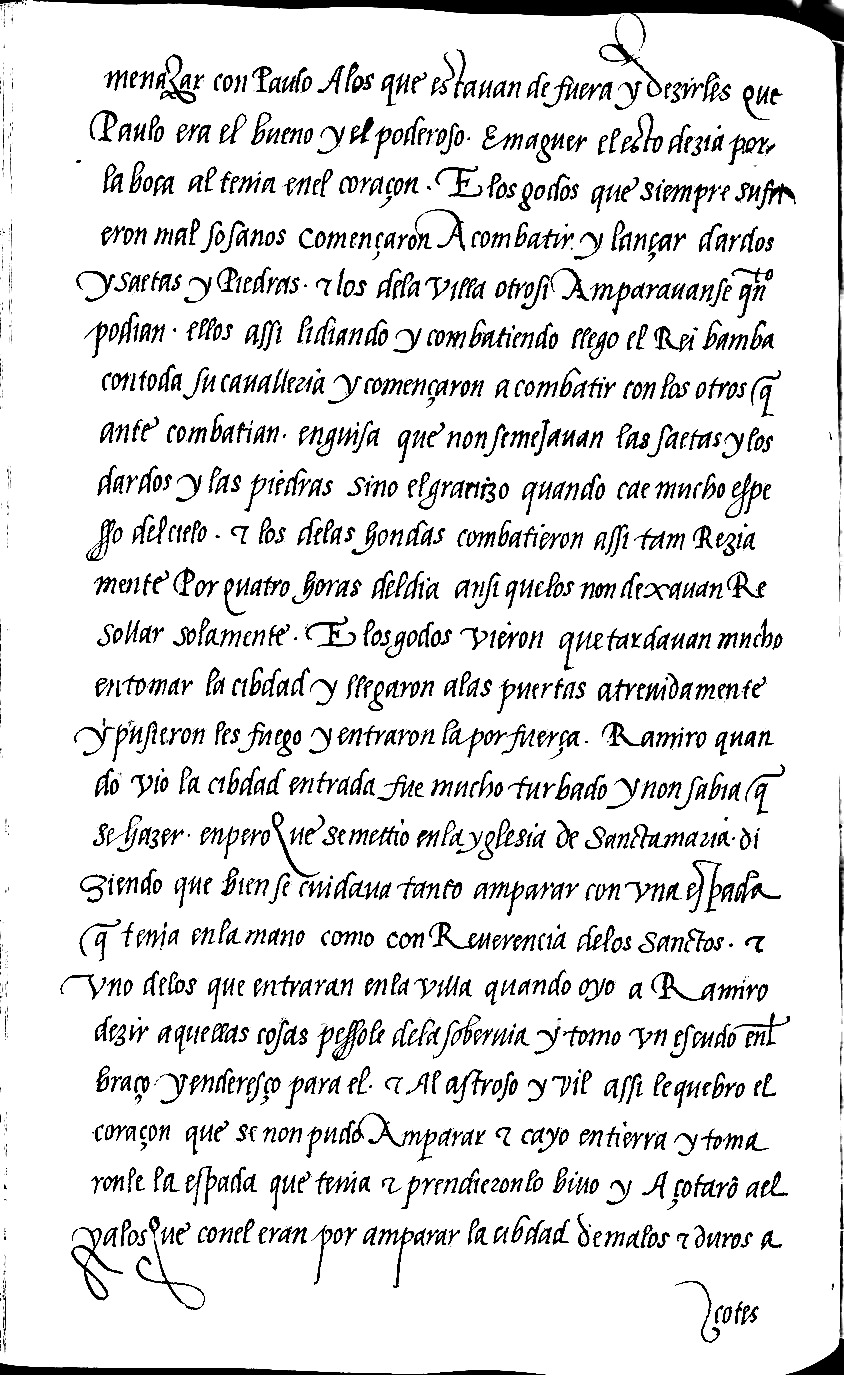 menazar con Paulo Alos que estauan de fuera y dezirles que
Paulo era el bueno y el poderoso. Emaguer el esto dezia por
la boca al tenia enel coraçon. E los godos que siempre sufri
eron mal sosanos començaron A combatir y lançar dardos
y saetas y Piedras. & los dela villa otrosi Amparauanse qñto
podian. ellos assi lidiando y combatiendo llego el Rei bamba
contoda su cauallezia y començaron a combatir con los otros q̃
ante combatian. enguisa que non semejauan las saetas y los
dardos y las piedras sino el granizo quando cae mucho espe
sso del cielo. & los delas hondas combatieron assi tam Rezia
mente Por quatro horas deldia ansi quelos non dexauan Re
sollar solamente. E los godos vieron que tardauan mucho
entomar la cibdad y llegaron alas puertas atreuidamente
y pusieron les fuego y entraron la por fuerça. Ramiro quan
do vio la cibdad entrada fue mucho turbado y non sabia q̃
se hazer. enpero que se mettio enla yglesia de Sanctamaria. di
ziendo que bien se cuidaua tanto amparar con vna espada
q̃ tenia enla mano como con Reuerencia delos Sanctos. &
vno delos que entraran enla villa quando oyo a Ramiro
dezir aquellas cosas pessole dela soberuia y tomo vn escudo enl
braço y enderesço para el. & Al astroso y vil assi le quebro el
coraçon que se non pudo Amparar & cayo entierra y toma
ronle la espada que tenia & prendieronlo biuo y Açotarõ ael
yalos que conel eran por amparar la cibdad demalos & duros a
çotes